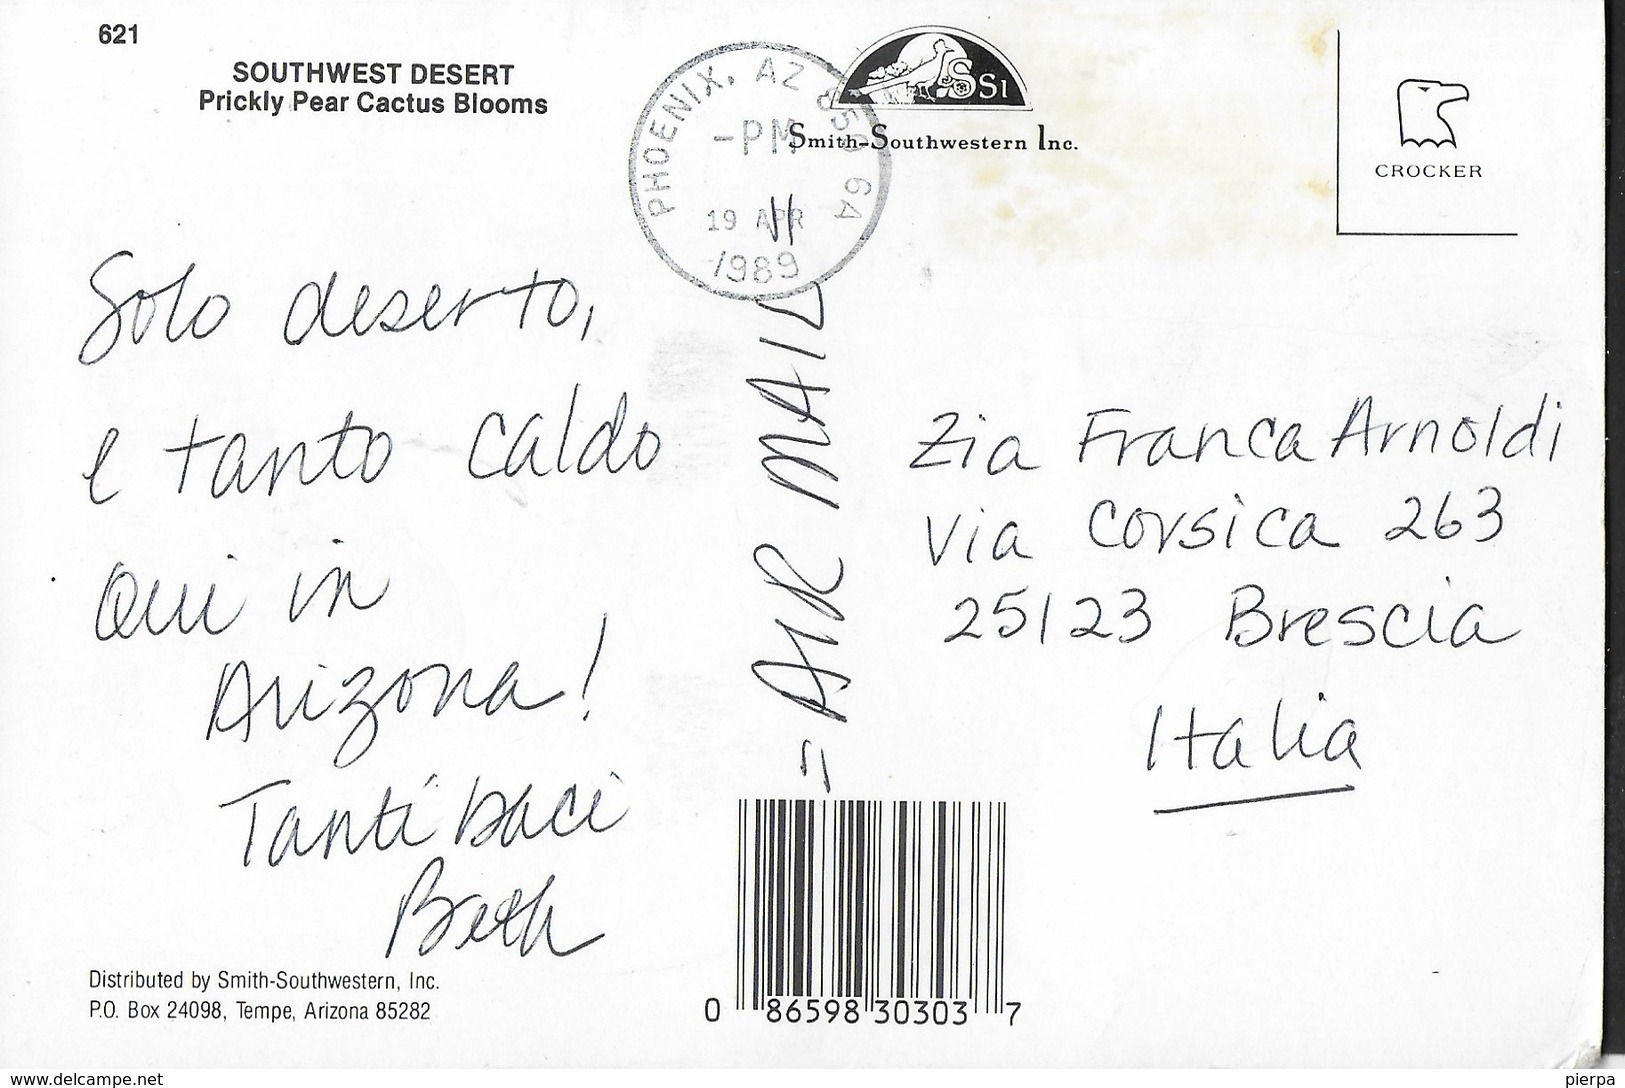 621
SOUTHWEST DESERT
Prickly Pear Cactus Blooms
PHOENIX, AZ 850 64
-PM
19 APR
1989
SSI
Smith-Southwestern Inc.
CROCKER
Solo deserto,
e tanto caldo
Qui in
Arizona!
Tanti baci
Beth
AIR MAIL
Zia Franca Arnoldi
Via Corsica 263
25123 Brescia
Italia
Distributed by Smith-Southwestern, Inc.
P.O. Box 24098, Tempe, Arizona 85282
0 86598 30303 7
www.delcampe.net
pierpa